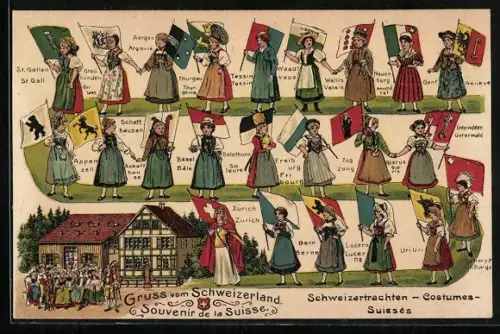 St. Gallen
St Gall
Grau
bünden
Aargau
Argovie
Thurgau
Tessin
Tessin
Waadt
Vaud
Wallis
Valais
Neuen
burg
Genf
Genève
Appen
zell
Schaff
hausen
Basel
Bâle
Solothurn
So
leure
Freib
urg
Fri
bourg
Zug
Zoug
Glarus
Unterwalden
Unterwald
Schwyz
Zürich
Zürich
Bern
Berne
Luzern
Lucer
ne
Uri Uri
Gruss vom Schweizerland.
Souvenir de la Suisse.
Schweizertrachten – Costumes-
Suisses